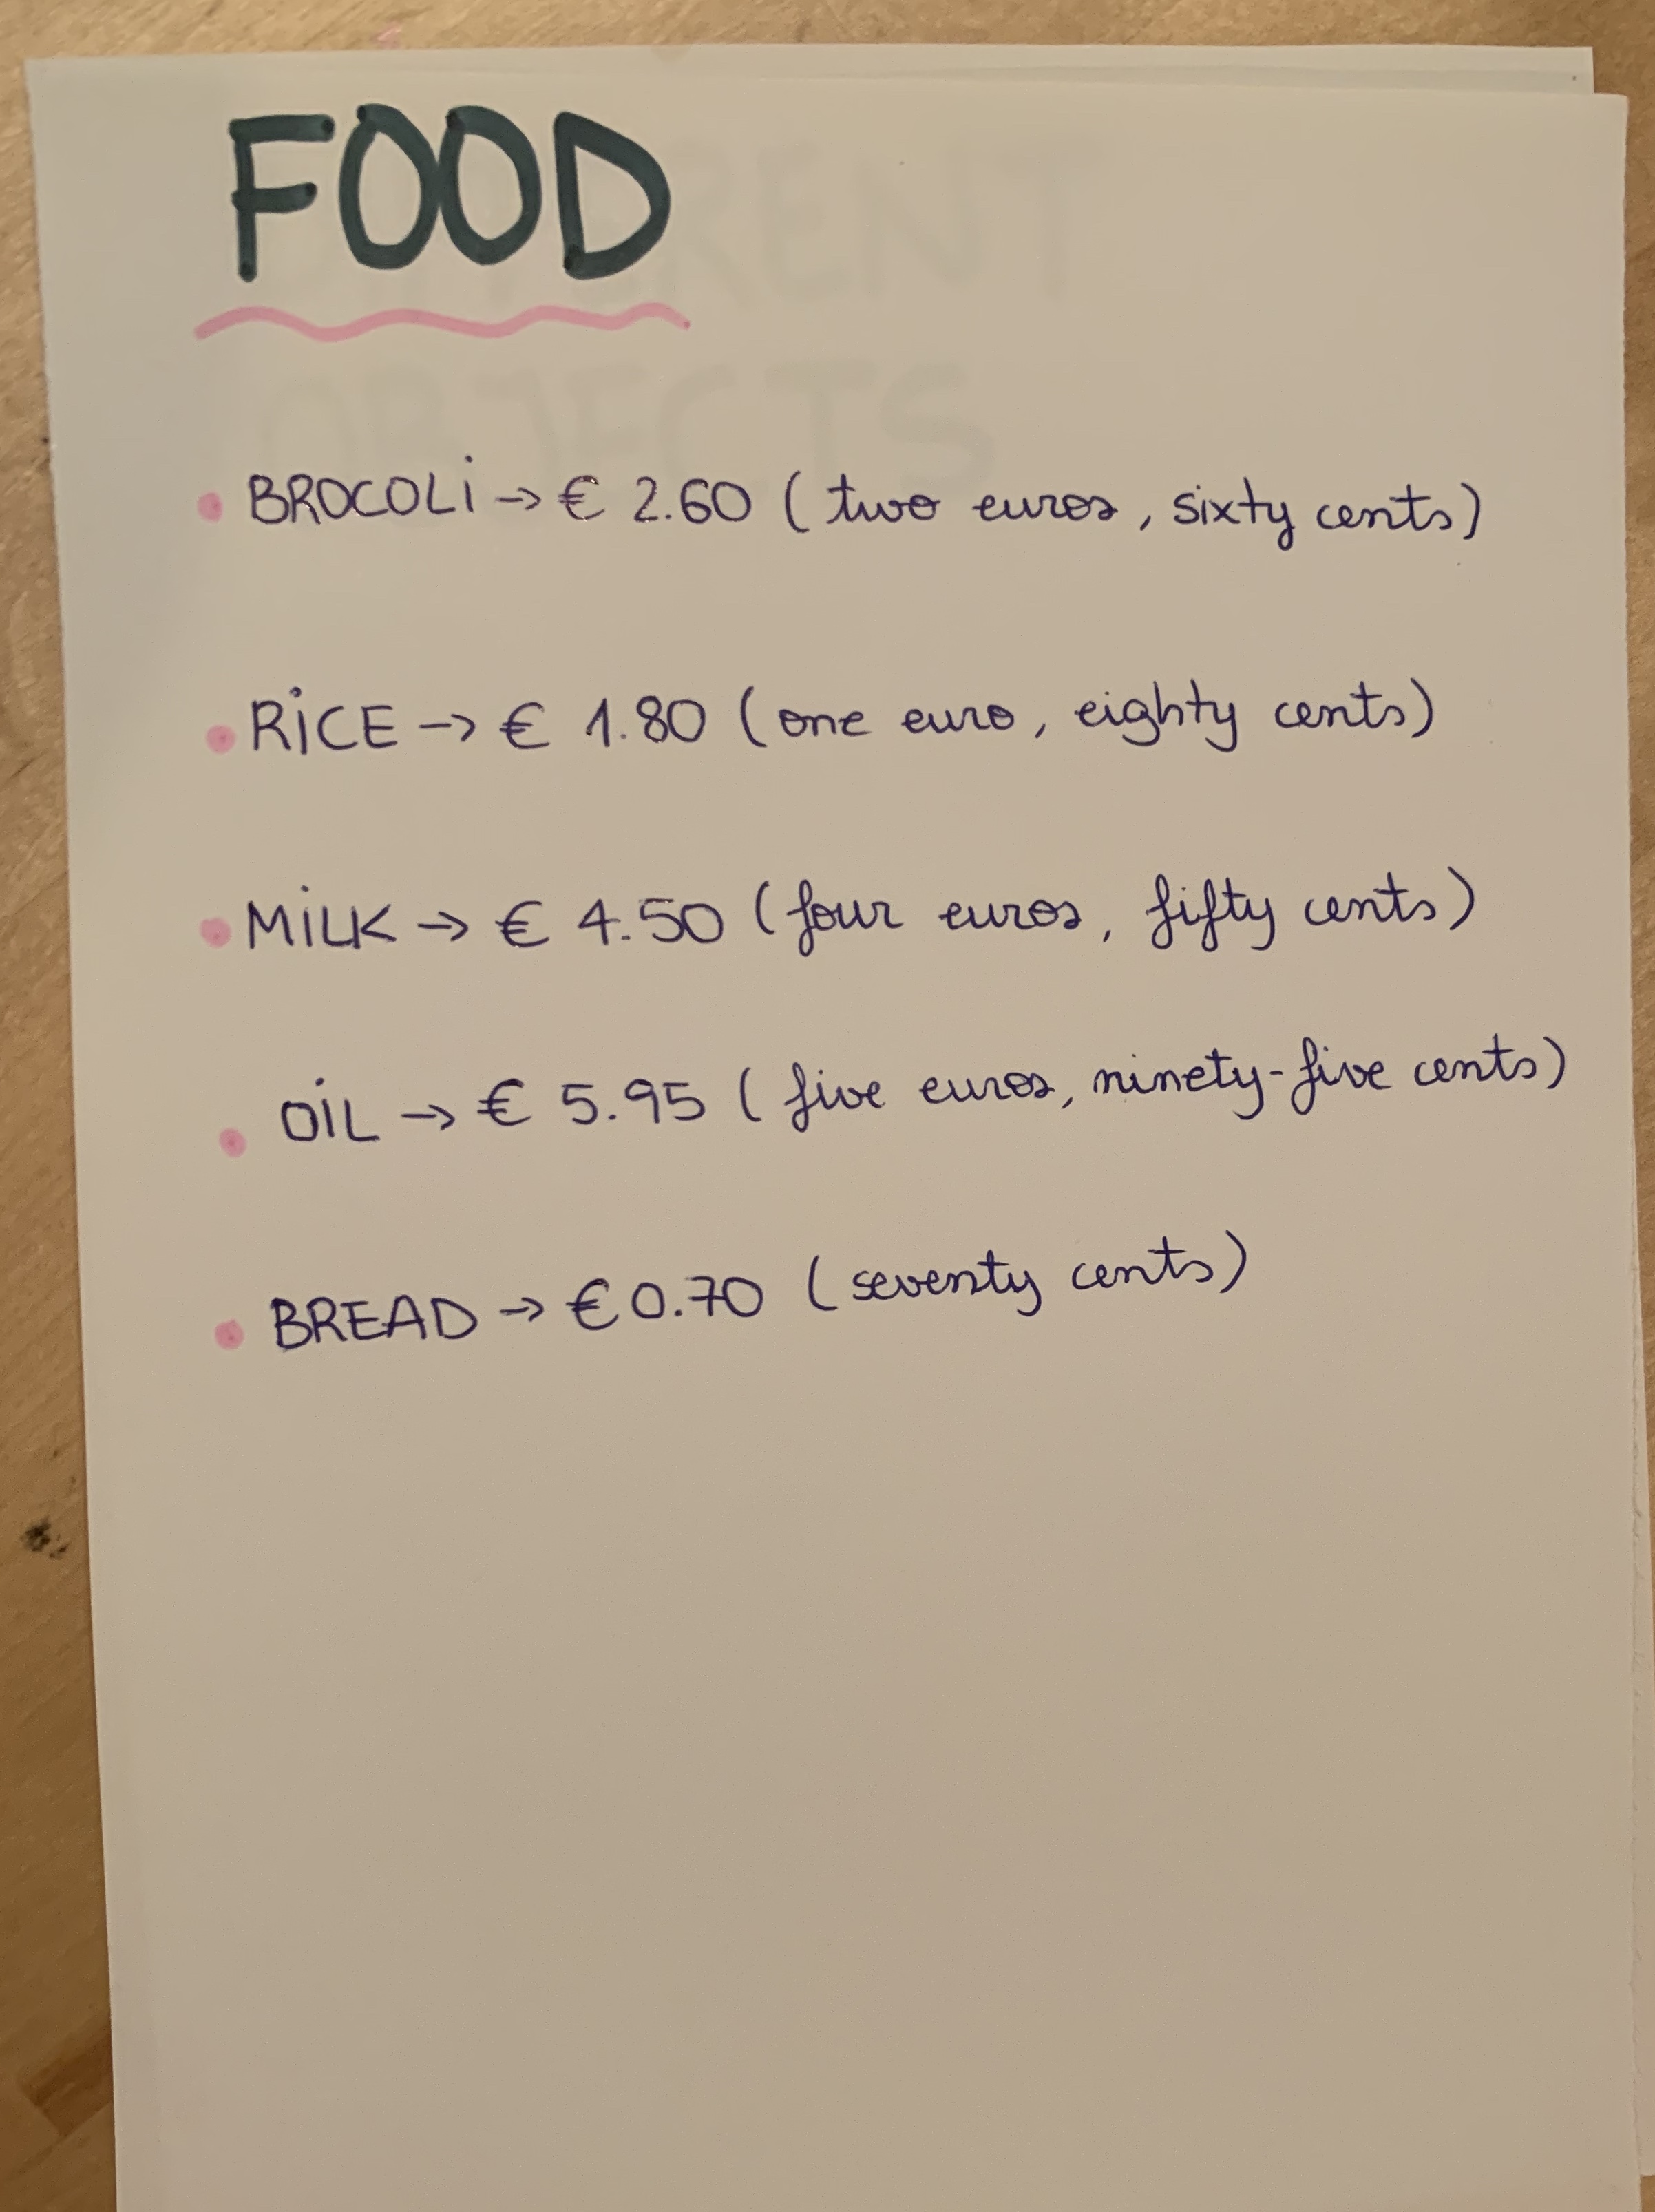 FOOD
BROCOLi → € 2.60 (two euros, sixty cents)
RiCE → € 1.80 (one euro, eighty cents)
MiLK → € 4.50 (four euros, fifty cents)
OiL → € 5.95 (five euros, ninety-five cents)
BREAD → €0.70 (seventy cents)